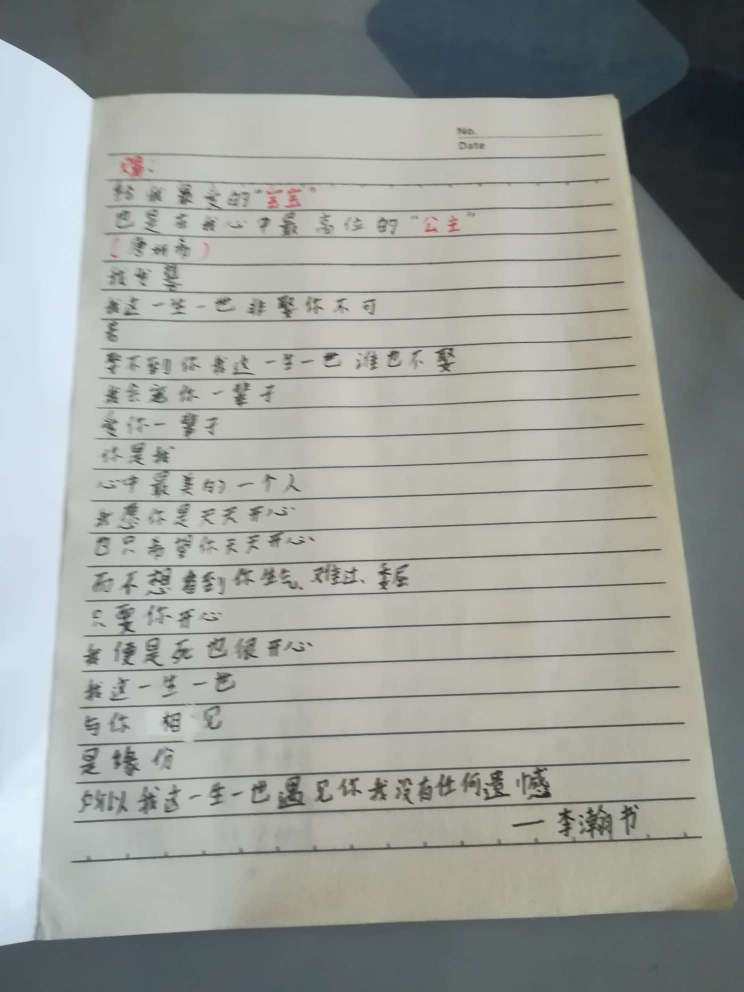 No.
Date
给我最爱的"宝宝"
也是在我心中最高位的"公主"
我这一生一世非娶你不可
若
娶不到你我这一生一世谁也不娶
我会宠你一辈子
爱你一辈子
你是我
心中最美的一个人
我想你是天天开心
也只希望你天天开心
而不想看到你生气、难过、委屈
只要你开心
我便是死也很开心
我这一生一世
与你相见
是缘份
所以我这一生一世遇见你我没有任何遗憾
—李瀚书